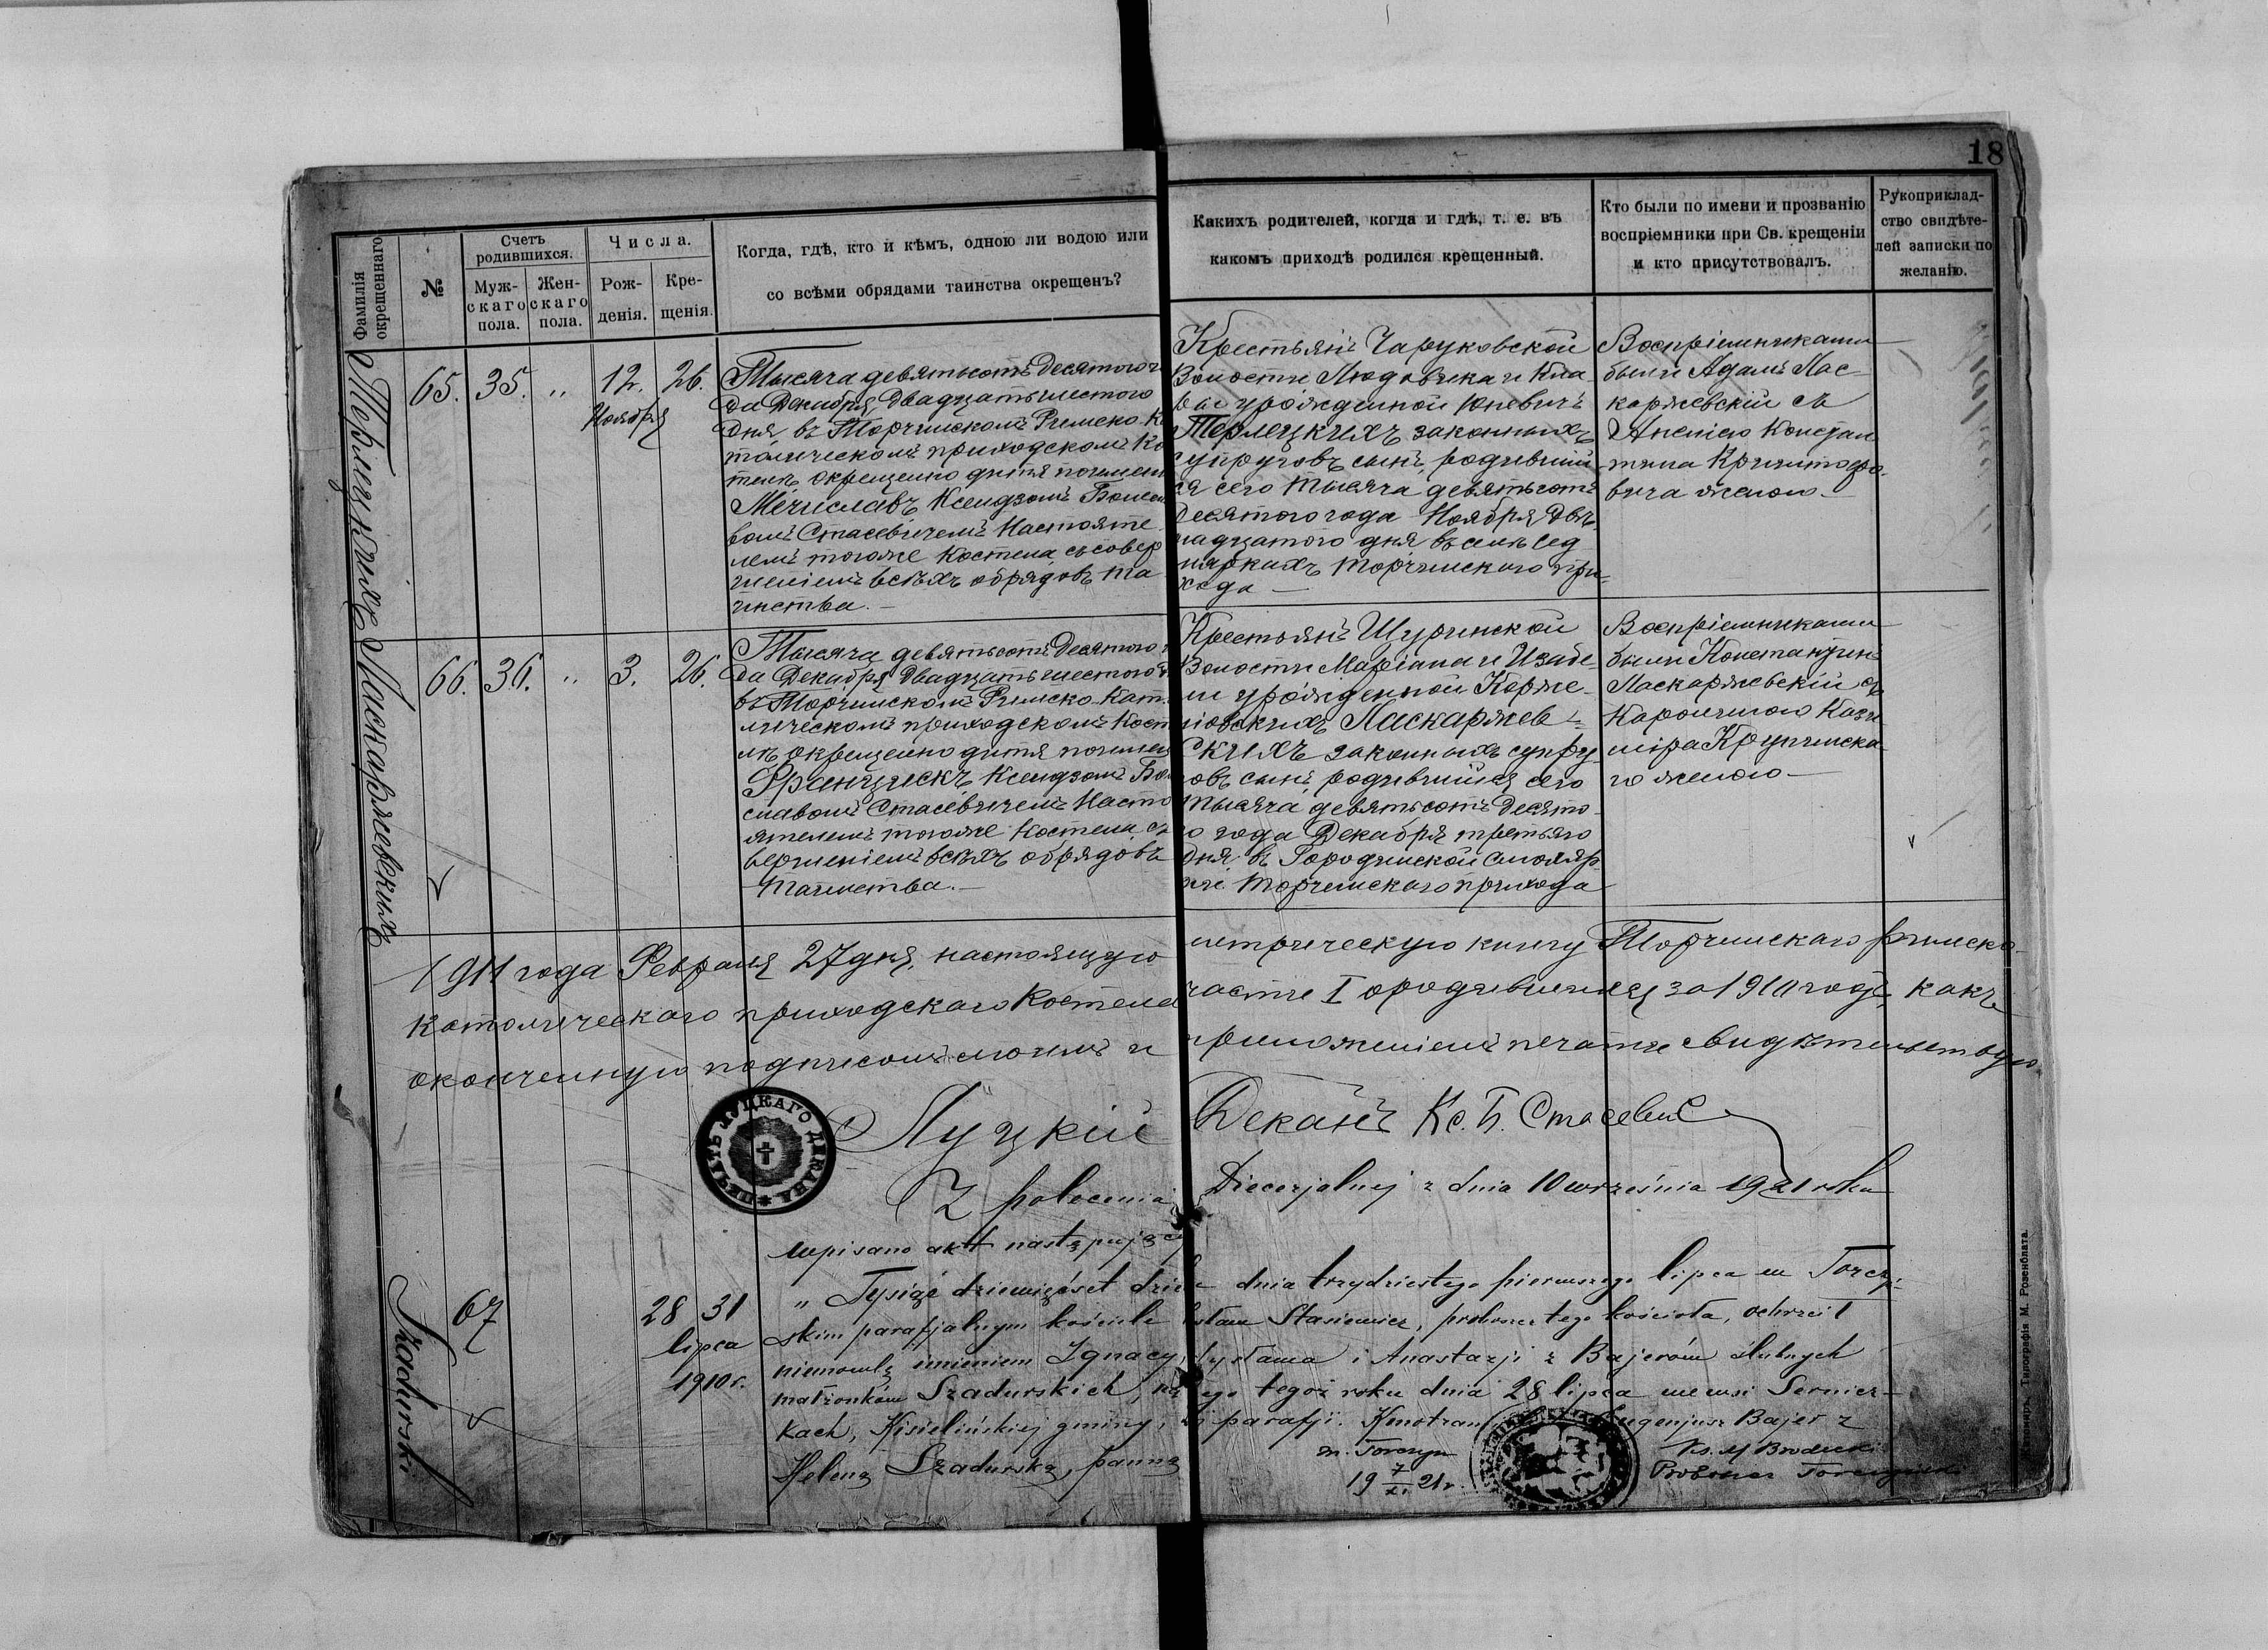 18
Фамилія окрещеннаго
№
Счетъ родившихся.
Муж-
скаго
пола.
Жен-
скаго
пола.
Числа.
Рож-
денія.
Кре-
щенія.
Когда, гдѣ, кто и кѣмъ, одною ли водою или
со всѣми обрядами таинства окрещенъ?
Какихъ родителей, когда и гдѣ, т. е. въ
какомъ приходѣ родился крещенный.
Кто были по имени и прозванію
воспріемники при Св. крещеніи
и кто присутствовалъ.
Рукоприклад-
ство свидѣте-
лей записки по
желанію.
Терлецкихъ
65. 35. „ 12. 26.
Ноября
Тысяча девятьсотъ Десятого
да Декабря, Двадцатьшестого
Дня, въ Торчинскомъ Римско-К
толическомъ приходскомъ Ко
телѣ окрещено дитя по имен
Мечиславъ Ксендзомъ Болес
вомъ Стасевичемъ Настояте
лемъ тогоже Костела, съ совер
шеніемъ всѣхъ обрядовъ та
инства.—
Крестьянъ Чаруковской
Волости Людовика и Кла
ры урожденной Юневичъ
Терлецкихъ законныхъ
супруговъ сынъ, родивший
ся сего тысяча девятьсотъ
Десятого года Ноября Двѣ
надцатого дня въ селѣ Сед
мяркахъ Торчинского при-
хода —
Воспріемниками
были Адамъ Лас-
каржевскій съ
Анелею Констан
тина Криштофо-
вича женою.—
Ласкаржевскихъ
66. 36. „ 3. 26.
Тысяча девятьсотъ Десятого
да Декабря Двадцатьшестого
въ Торчинскомъ Римско-Кат
лическомъ приходскомъ Кост
лѣ окрещено дитя по имен
Францискъ Ксендзомъ Бо
славомъ Стасевичемъ Насто
ятелемъ тогоже Костела, съ
вершеніемъ всѣхъ обрядовъ
Таинства.—
Крестьянъ Щуринской
Волости Маріана и Изабе-
лы урожденной Корже-
ніовскихъ Ласкаржев-
скихъ законныхъ супру
овъ сынъ, родившийся сего
тысяча девятьсотъ Десято
о года Декабря третьяго
дня въ Городинской смоляр
ні Торчинскаго прихода
Воспріемниками
были Константинъ
Ласкаржевскій съ
Каролиною Кази
міра Крупинска
го женою—
1911 года Февраля 27 дня, настоящую
етрическую книгу Торчинскаго римско-
католическаго приходскаго Костела
части I о родившихся за 1910 годъ, какъ
оконченную подписомъ моимъ и
приложеніемъ печати свидѣтельствую
Луцкій Деканъ Кс. Б. Стасевич
ПЕЧАТЬ ЛУЦКАГО ДЕКАНА
Z polecenia Diecezjalnej z dnia 10 września 1921 roku
wpisano akt następujący
Szadurski
67 28 31
lipca
1910 r.
„ Tysiąc dziewięćset dzie dnia trzydziestego pierwszego lipca w Torczyń-
skim parafjalnym kościele sław Stasiewicz, proboszcz tego kościoła, ochrzcił
niemowlę imieniem Ignacy, ysława i Anastazji z Bajerów ślubnych
małżonków Szadurskich, ego tegoż roku dnia 28 lipca we wsi Sernicz-
kach, Kisielińskiej gminy, parafji. Kmotrami Eugenjusz Bajer z
Heleną Szadurską, panną
m. Torczyn
19 7/XI 21 r.
Ks. M Brodecki
Proboszcz
Типографія М. Розенблата.